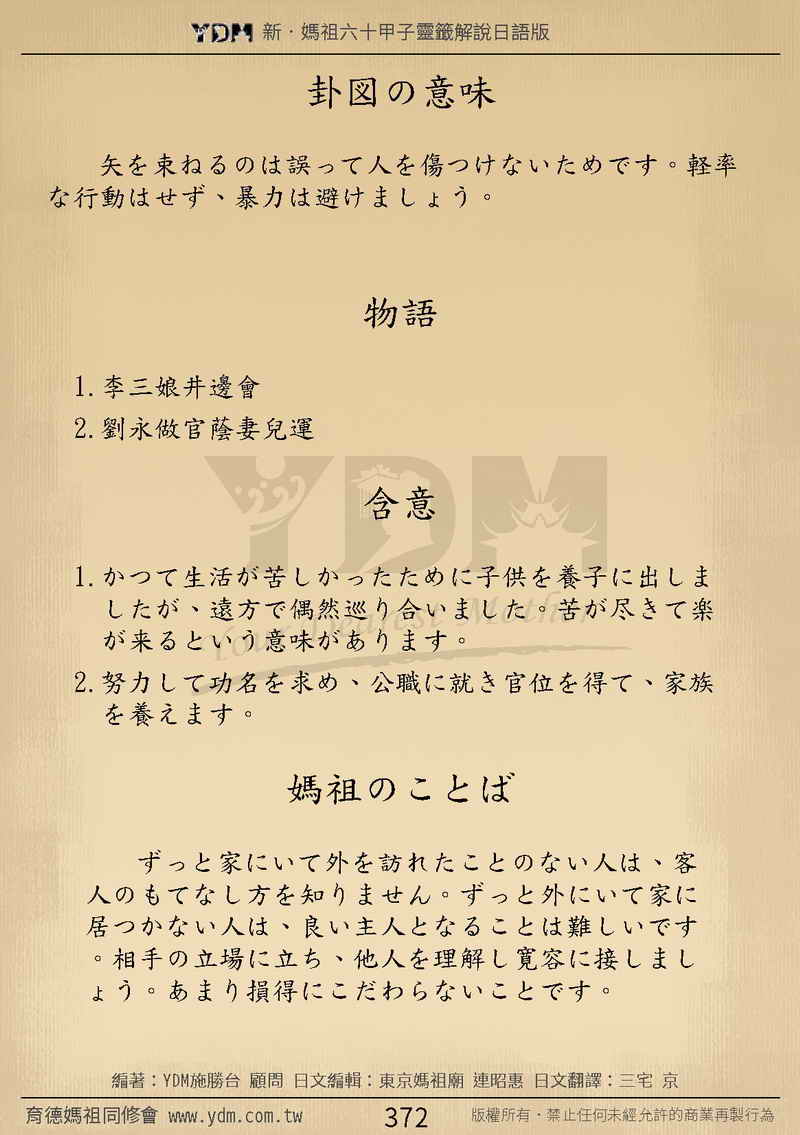 YDM 新．媽祖六十甲子靈籤解說日語版
卦図の意味
矢を束ねるのは誤って人を傷つけないためです。軽率
な行動はせず、暴力は避けましょう。
物語
1.李三娘井邊會
2.劉永做官蔭妻兒運
YDM
含意
1.かつて生活が苦しかったために子供を養子に出しま
したが、遠方で偶然巡り合いました。苦が尽きて楽
が来るという意味があります。
Your Dearest Mother
2.努力して功名を求め、公職に就き官位を得て、家族
を養えます。
媽祖のことば
ずっと家にいて外を訪れたことのない人は、客
人のもてなし方を知りません。ずっと外にいて家に
居つかない人は、良い主人となることは難しいです
。相手の立場に立ち、他人を理解し寛容に接しまし
ょう。あまり損得にこだわらないことです。
編著：YDM施勝台 顧問 日文編輯：東京媽祖廟 連昭惠 日文翻譯：三宅 京
育德媽祖同修會 www.ydm.com.tw 372 版權所有．禁止任何未經允許的商業再製行為